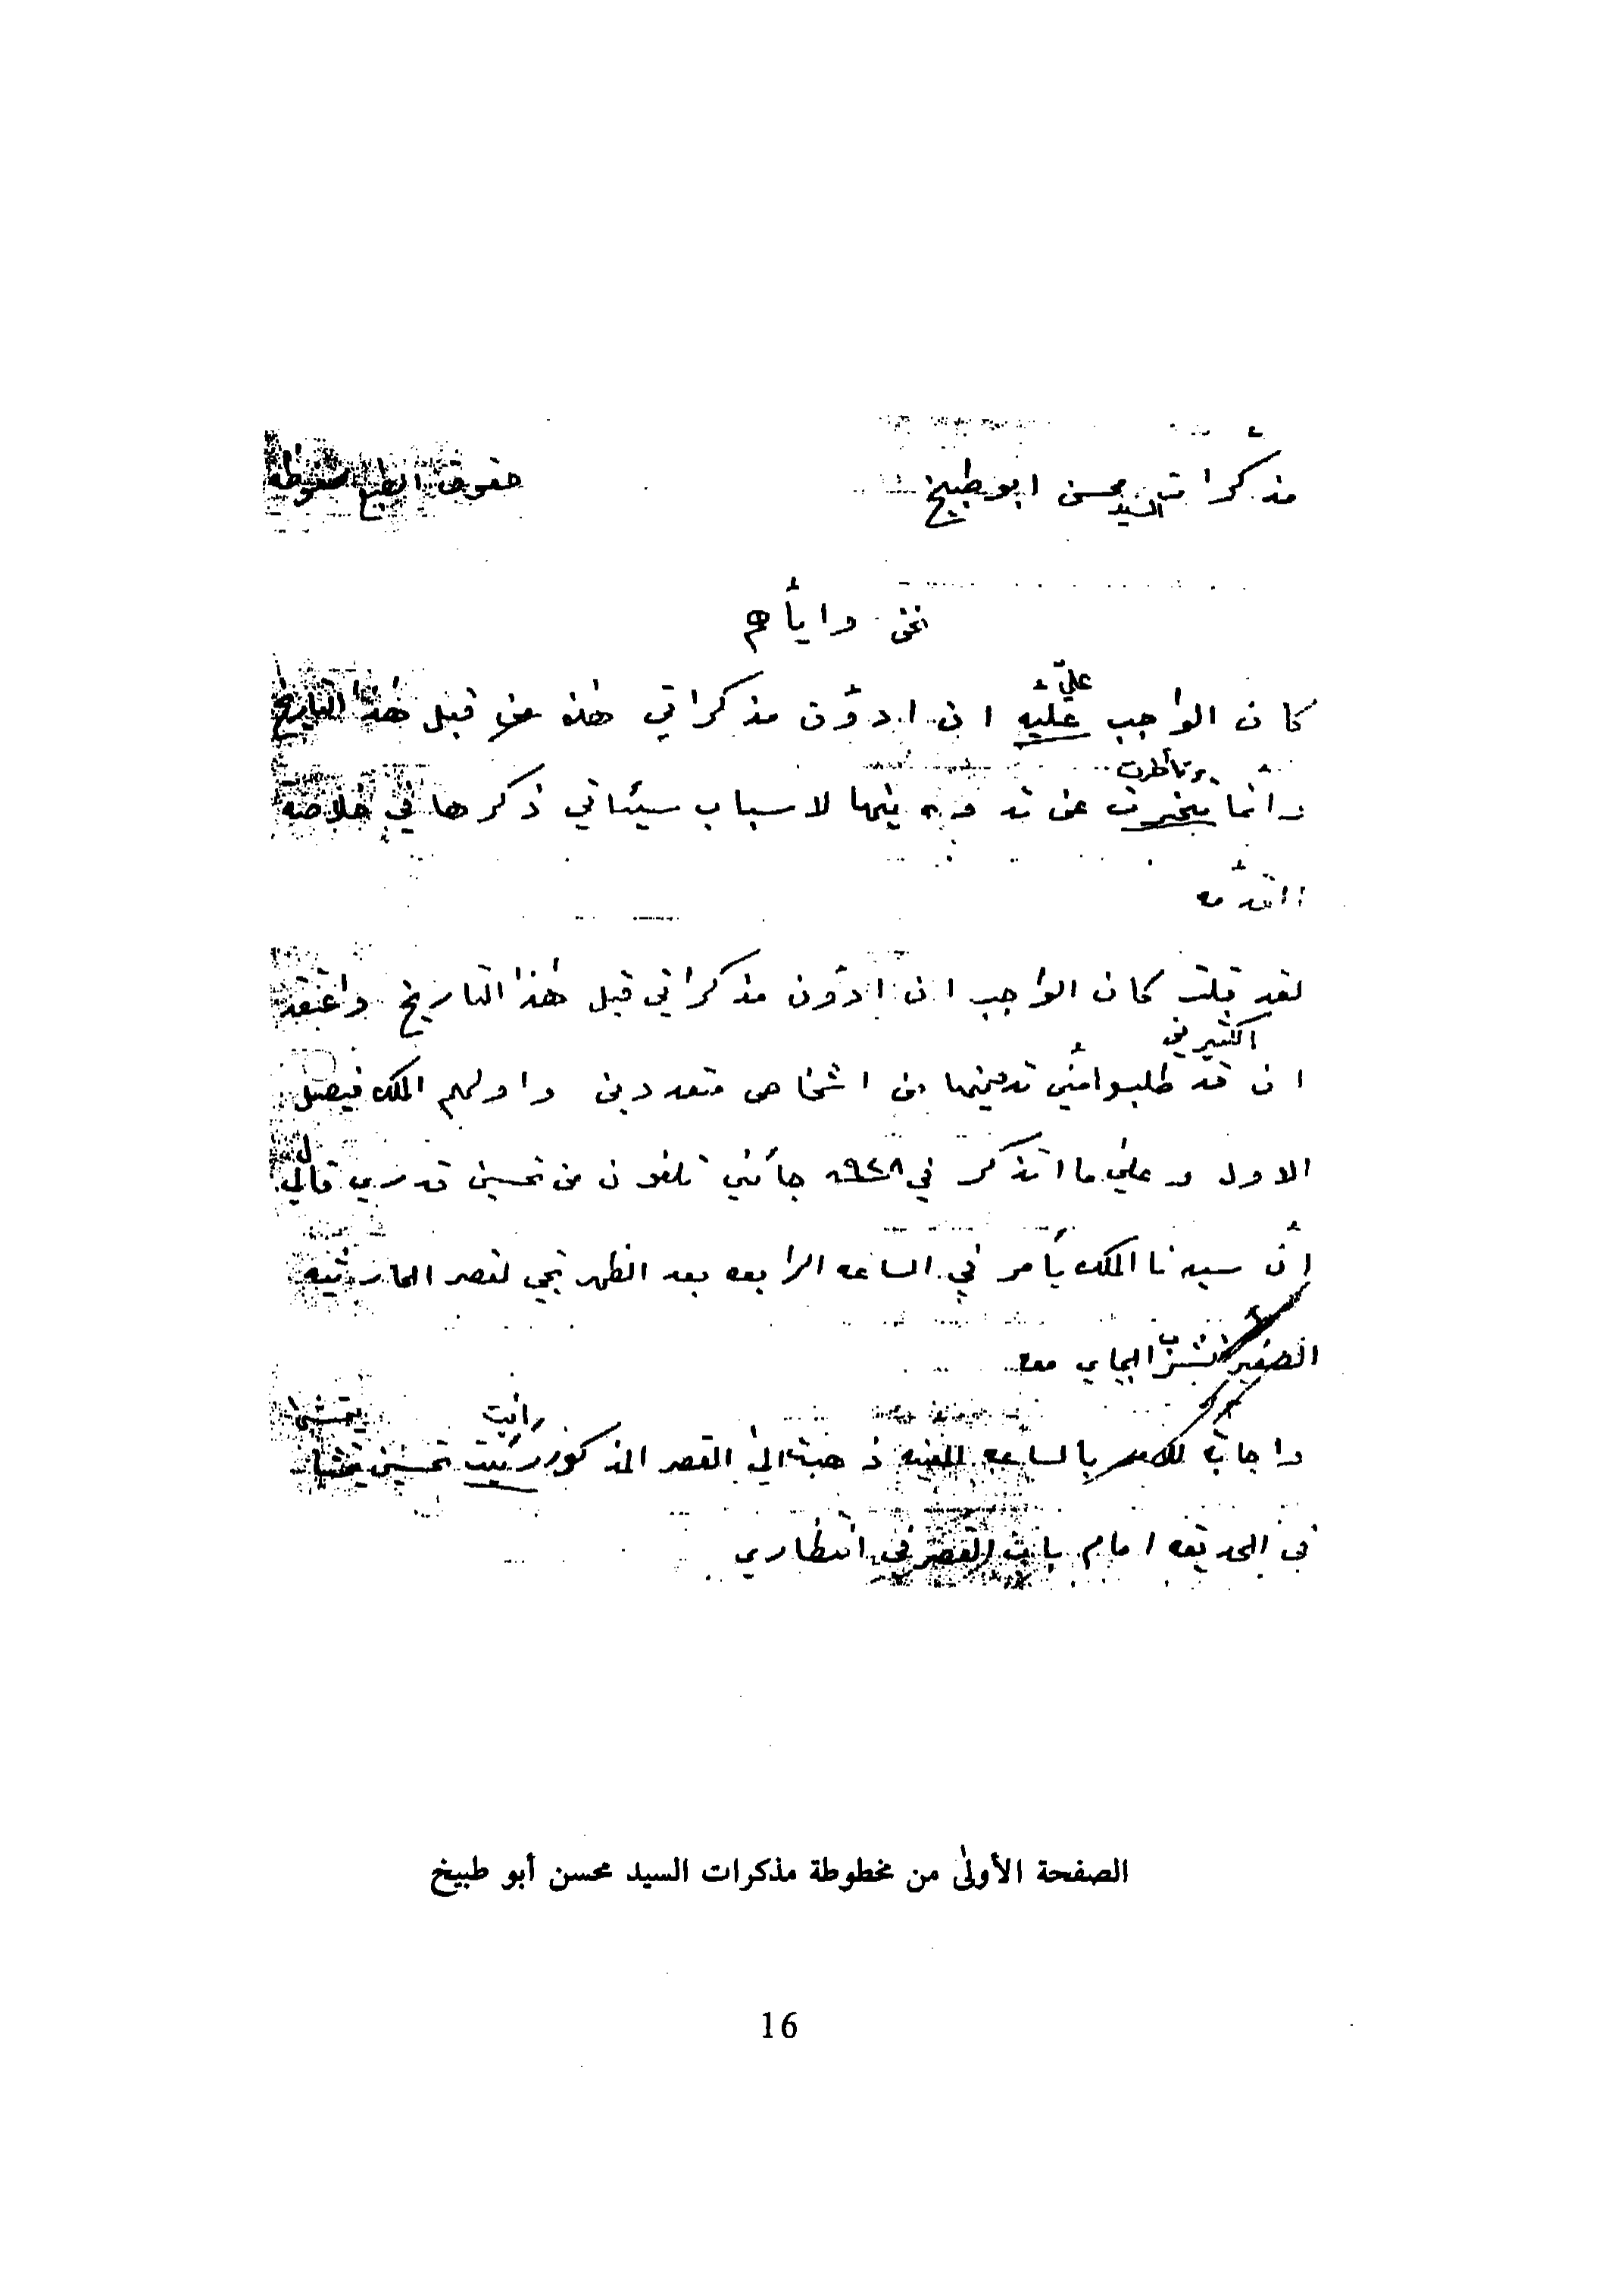 مذكرات السيد محسن ابو طبيخ
حقوق الطبع محفوظة
نحن وايأهم
كان الواجب عليه عليّ ان ادوّن مذكراتي هذه من قبل هذا التاريخ
وانما تأخرت عن تدوينها لاسباب سيئاتي ذكرها في خلاصة
المقدّمه
لقد قلت كان الواجب ان ادوّن مذكراتي قبل هذا التاريخ واعتقد
ان قد طلبوا مني تدوينها من اشخاص متعددين واولهم الملك فيصل
الاول وعلى ما اتذكر في ١٩٢٨ جائني تلفون من تحسين قدري قال لي
انّ سيدنا الملك يأمر في الساعه الرابعه بعد الظهر تجي لقصر الحارثيه
الصغير تشرب الچاي معه
واجابة للامر بالساعه المعينه ذهبت الى القصر المذكور ورئيت رائيت تحسين يتمشى
في الحديقه امام باب القصر في انتظاري
الصفحة الأولىٰ من مخطوطة مذكرات السيد محسن أبو طبيخ
16